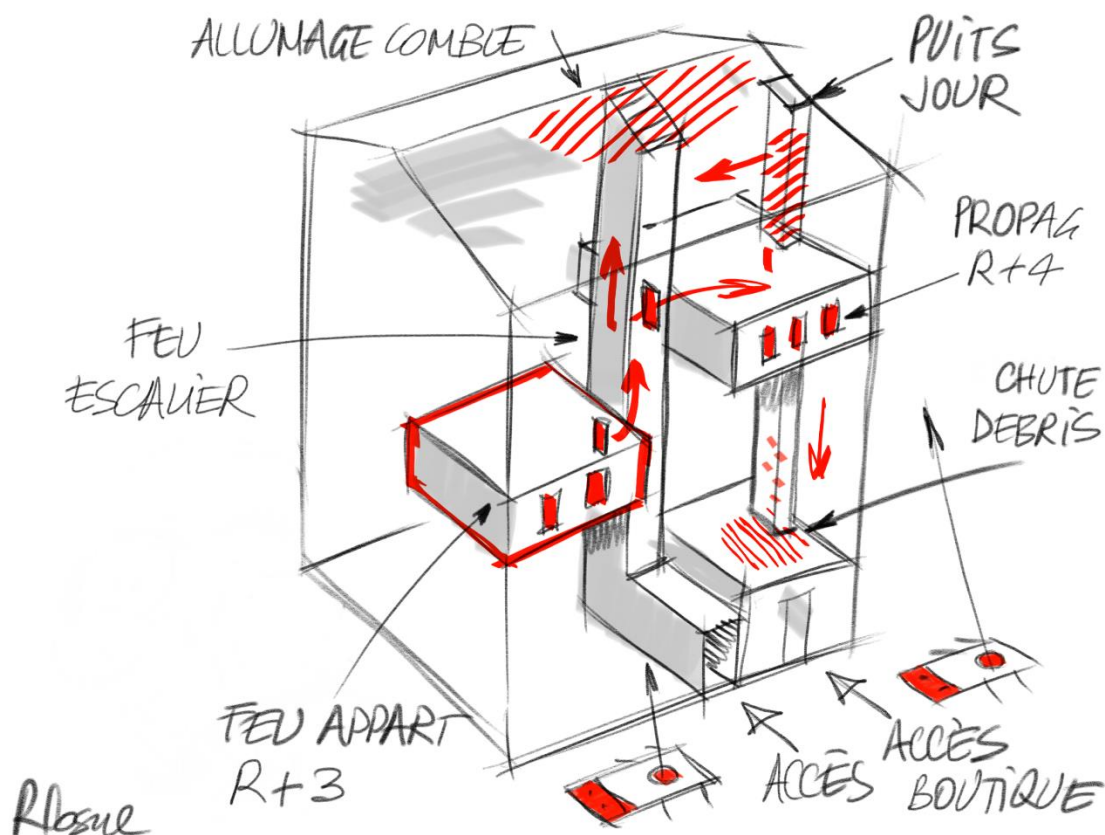 ALLUMAGE COMBLE
PUITS
JOUR
PROPAG
R+4
FEU
ESCALIER
CHUTE
DEBRIS
FEU APPART
R+3
ACCÈS
ACCÈS
BOUTIQUE